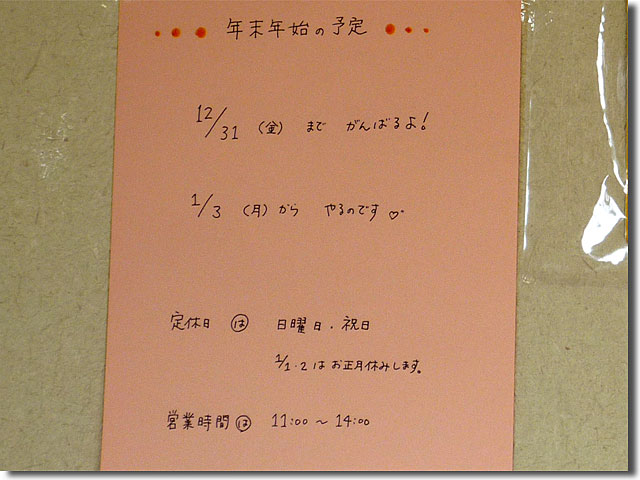 年末年始の予定
12/31 (金) まで がんばるよ!
1/3 (月) から やるのです♡
定休日 は 日曜日・祝日
1/1・2 は お正月休みします。
営業時間 は 11:00 ~ 14:00